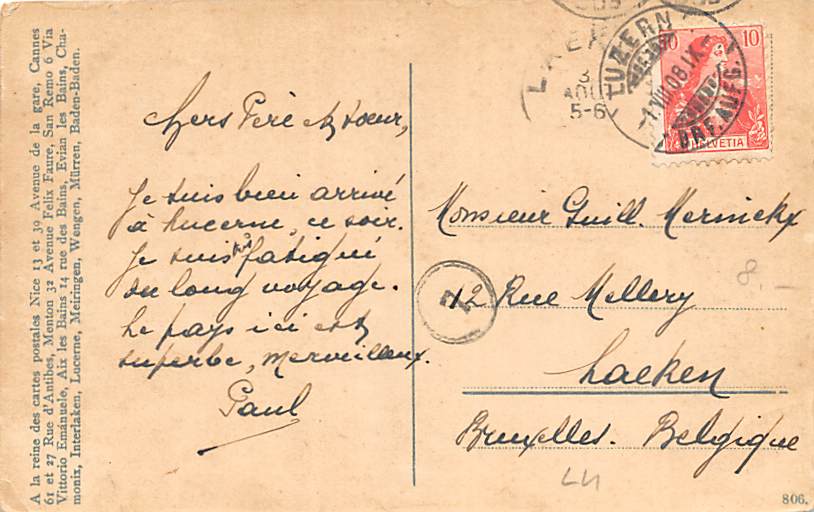 A la reine des cartes postales Nice 13 et 39 Avenue de la gare, Cannes
61 et 27 Rue d'Antibes, Menton 32 Avenue Felix Faure, San Remo 6 Via
Vittorio Emánuele, Aix les Bains 14 rue des Bains, Evian les Bains, Cha-
monix, Interlaken, Lucerne, Meiringen, Wengen, Mürren, Baden-Baden.
Chers Père et Sœur,
Je suis bien arrivé
à Lucerne, ce soir.
Je suis très fatigué
du long voyage.
Le pays ici est
superbe, merveilleux.
Paul
LAEK
3
AOU
5-6
LUZERN
1.VIII.08.IX
BRF.AUFG.
10 10
HELVETIA
Monsieur Guill. Mernickx
12 Rue Mellery
Laeken
Bruxelles. Belgique
8.-
806.